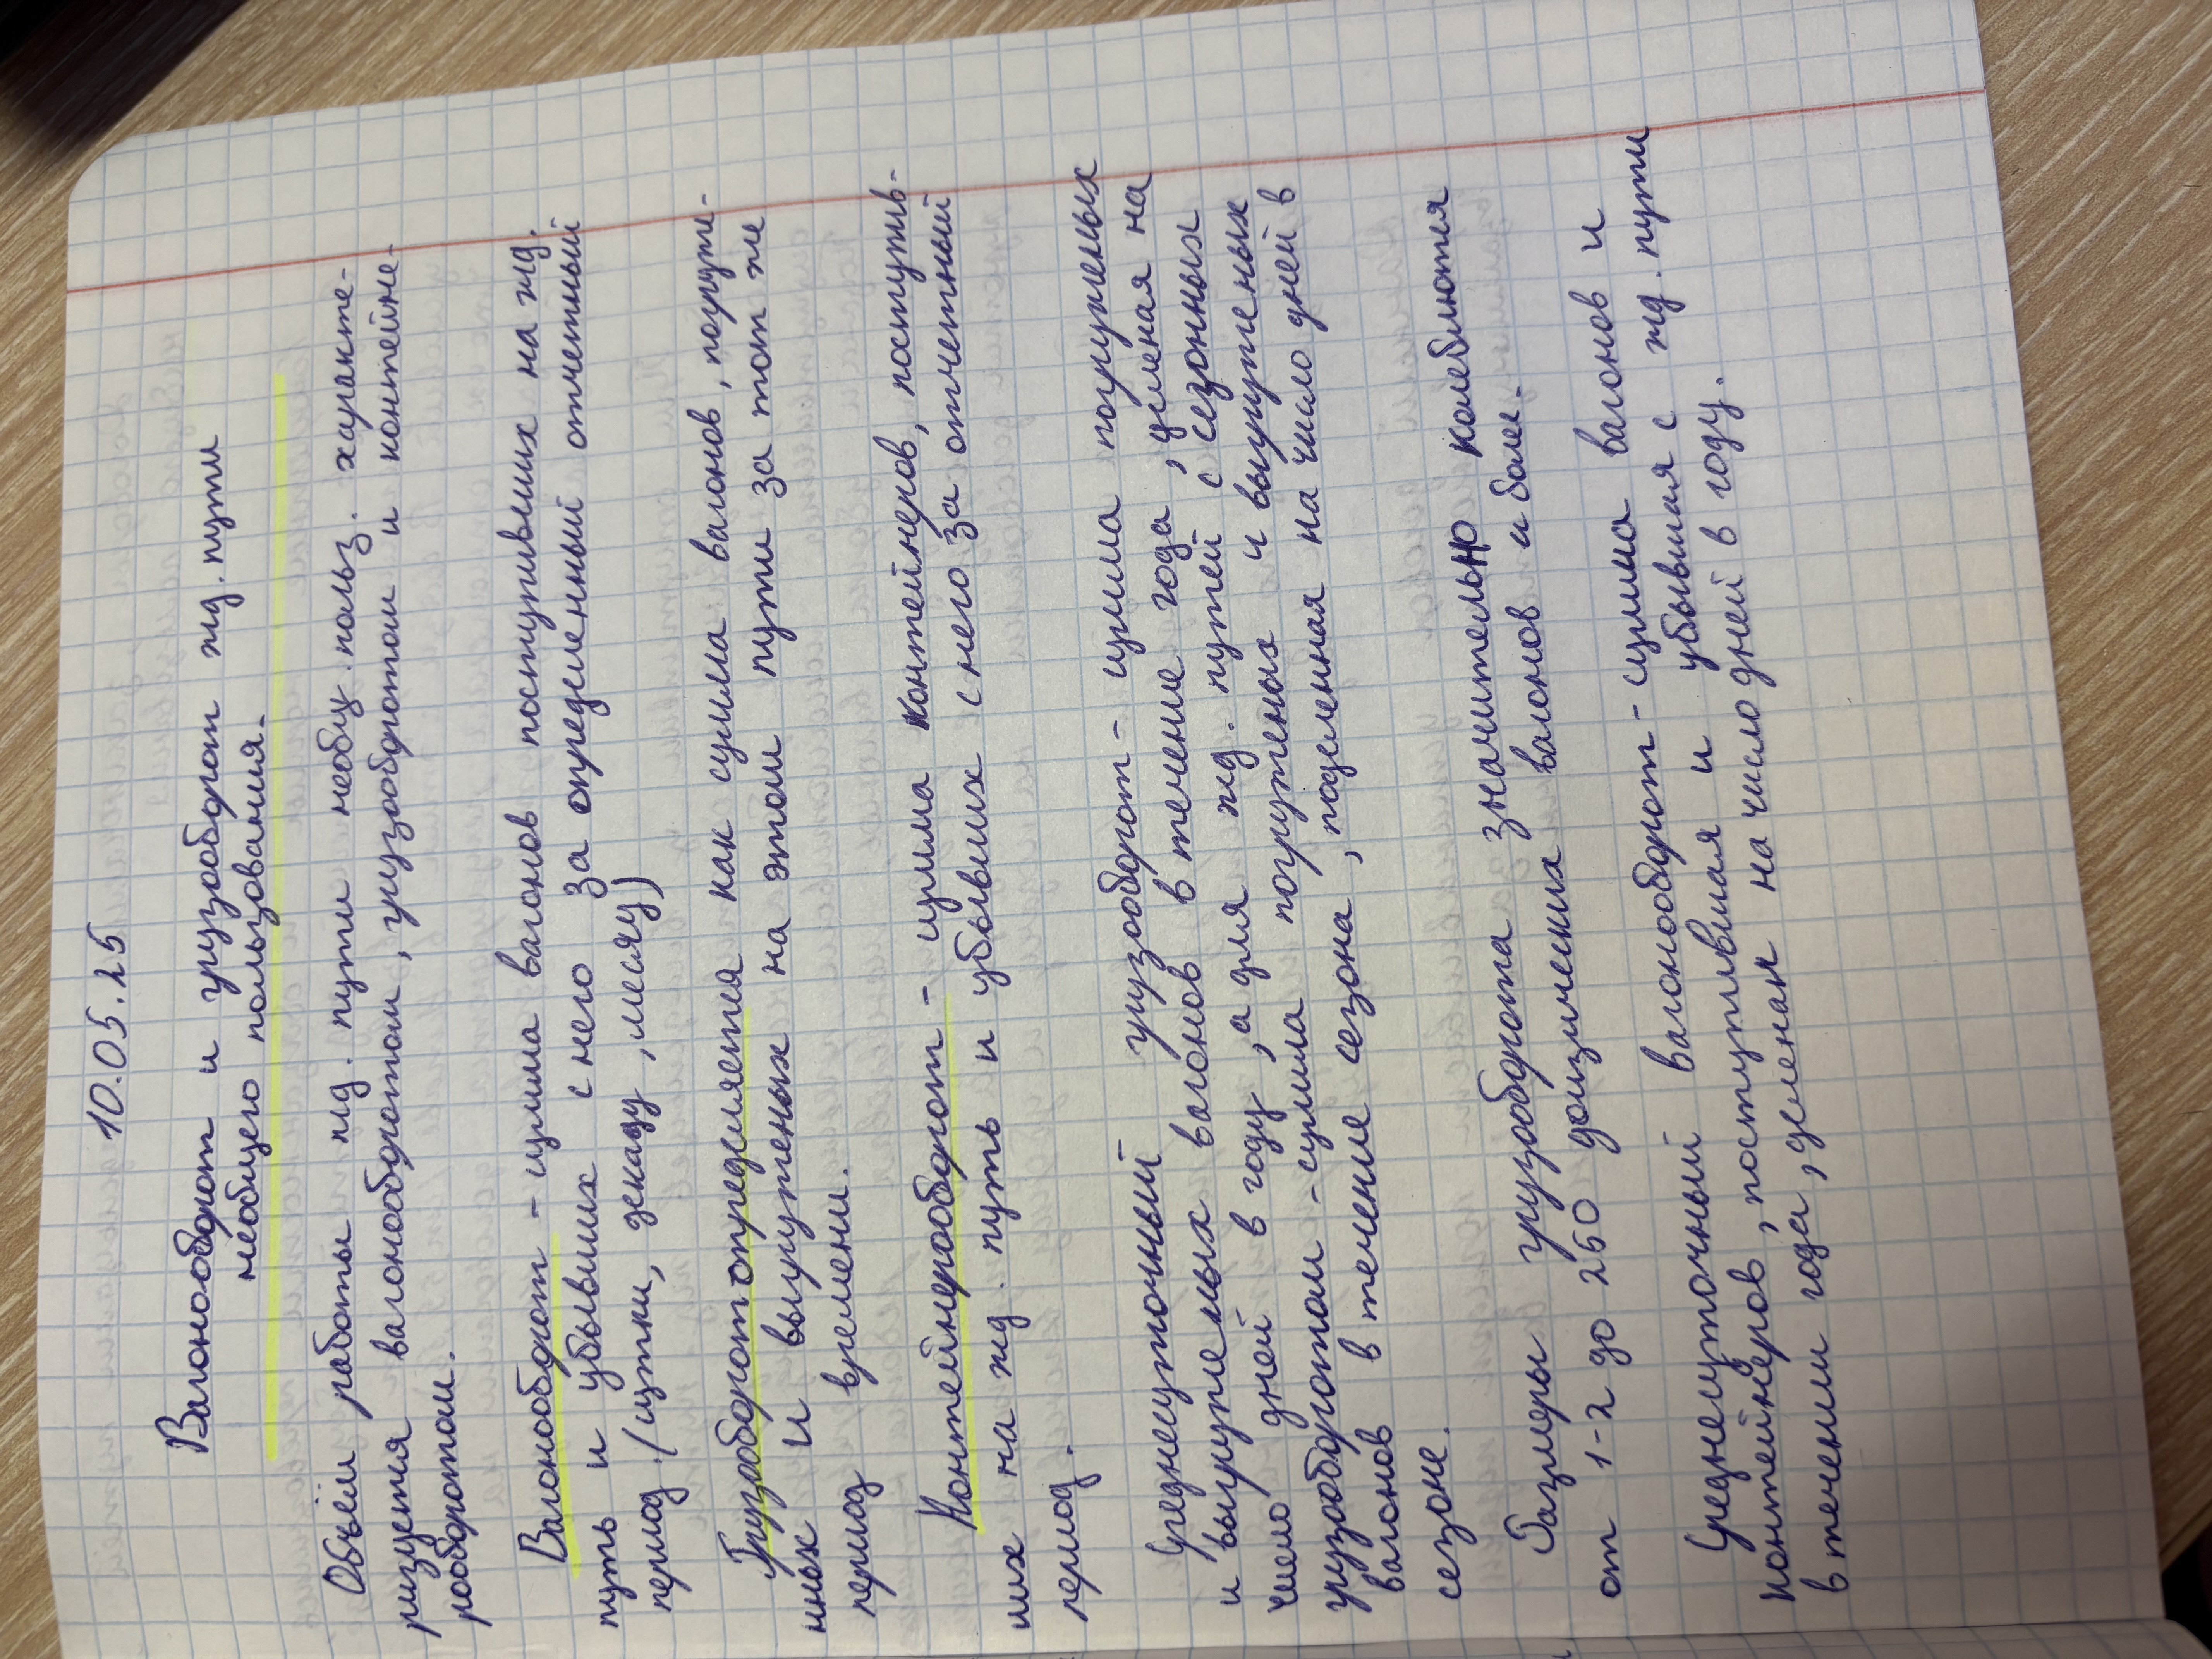 10.05.25
Вагонооборот и грузооборот жд. пути
необщего пользования.
Объём работы жд. пути необщ. польз. характе-
ризуется вагонооборотом, грузооборотом и контейне-
рооборотом.
Вагонооборот - сумма вагонов поступивших на жд.
путь и убывших с него за определенный отчетный
период. (сутки, декаду, месяц)
Грузооборот определяется как сумма вагонов, погруже-
нных и выгруженых на этом пути за тот же
период времени.
Контейнерооборот - сумма контейнеров, поступив-
ших на жд. путь и убывших с него за отчетный
период.
Среднесуточный грузооборот - сумма погруженых
и выгружемых вагонов в течение года, деленая на
число дней в году, а для жд. путей с сезонных
грузооборотом - сумма погруженых и выгруженых
вагонов в течение сезона, поделенная на число дней в
сезоне.
Размеры грузооборота значительно колеблются
от 1-2 до 260 физических вагонов и более.
Среднесуточный вагонооборот - сумма вагонов и
контейнеров, поступившая и убывшая с жд. пути
в течении года, деленая на число дней в году.